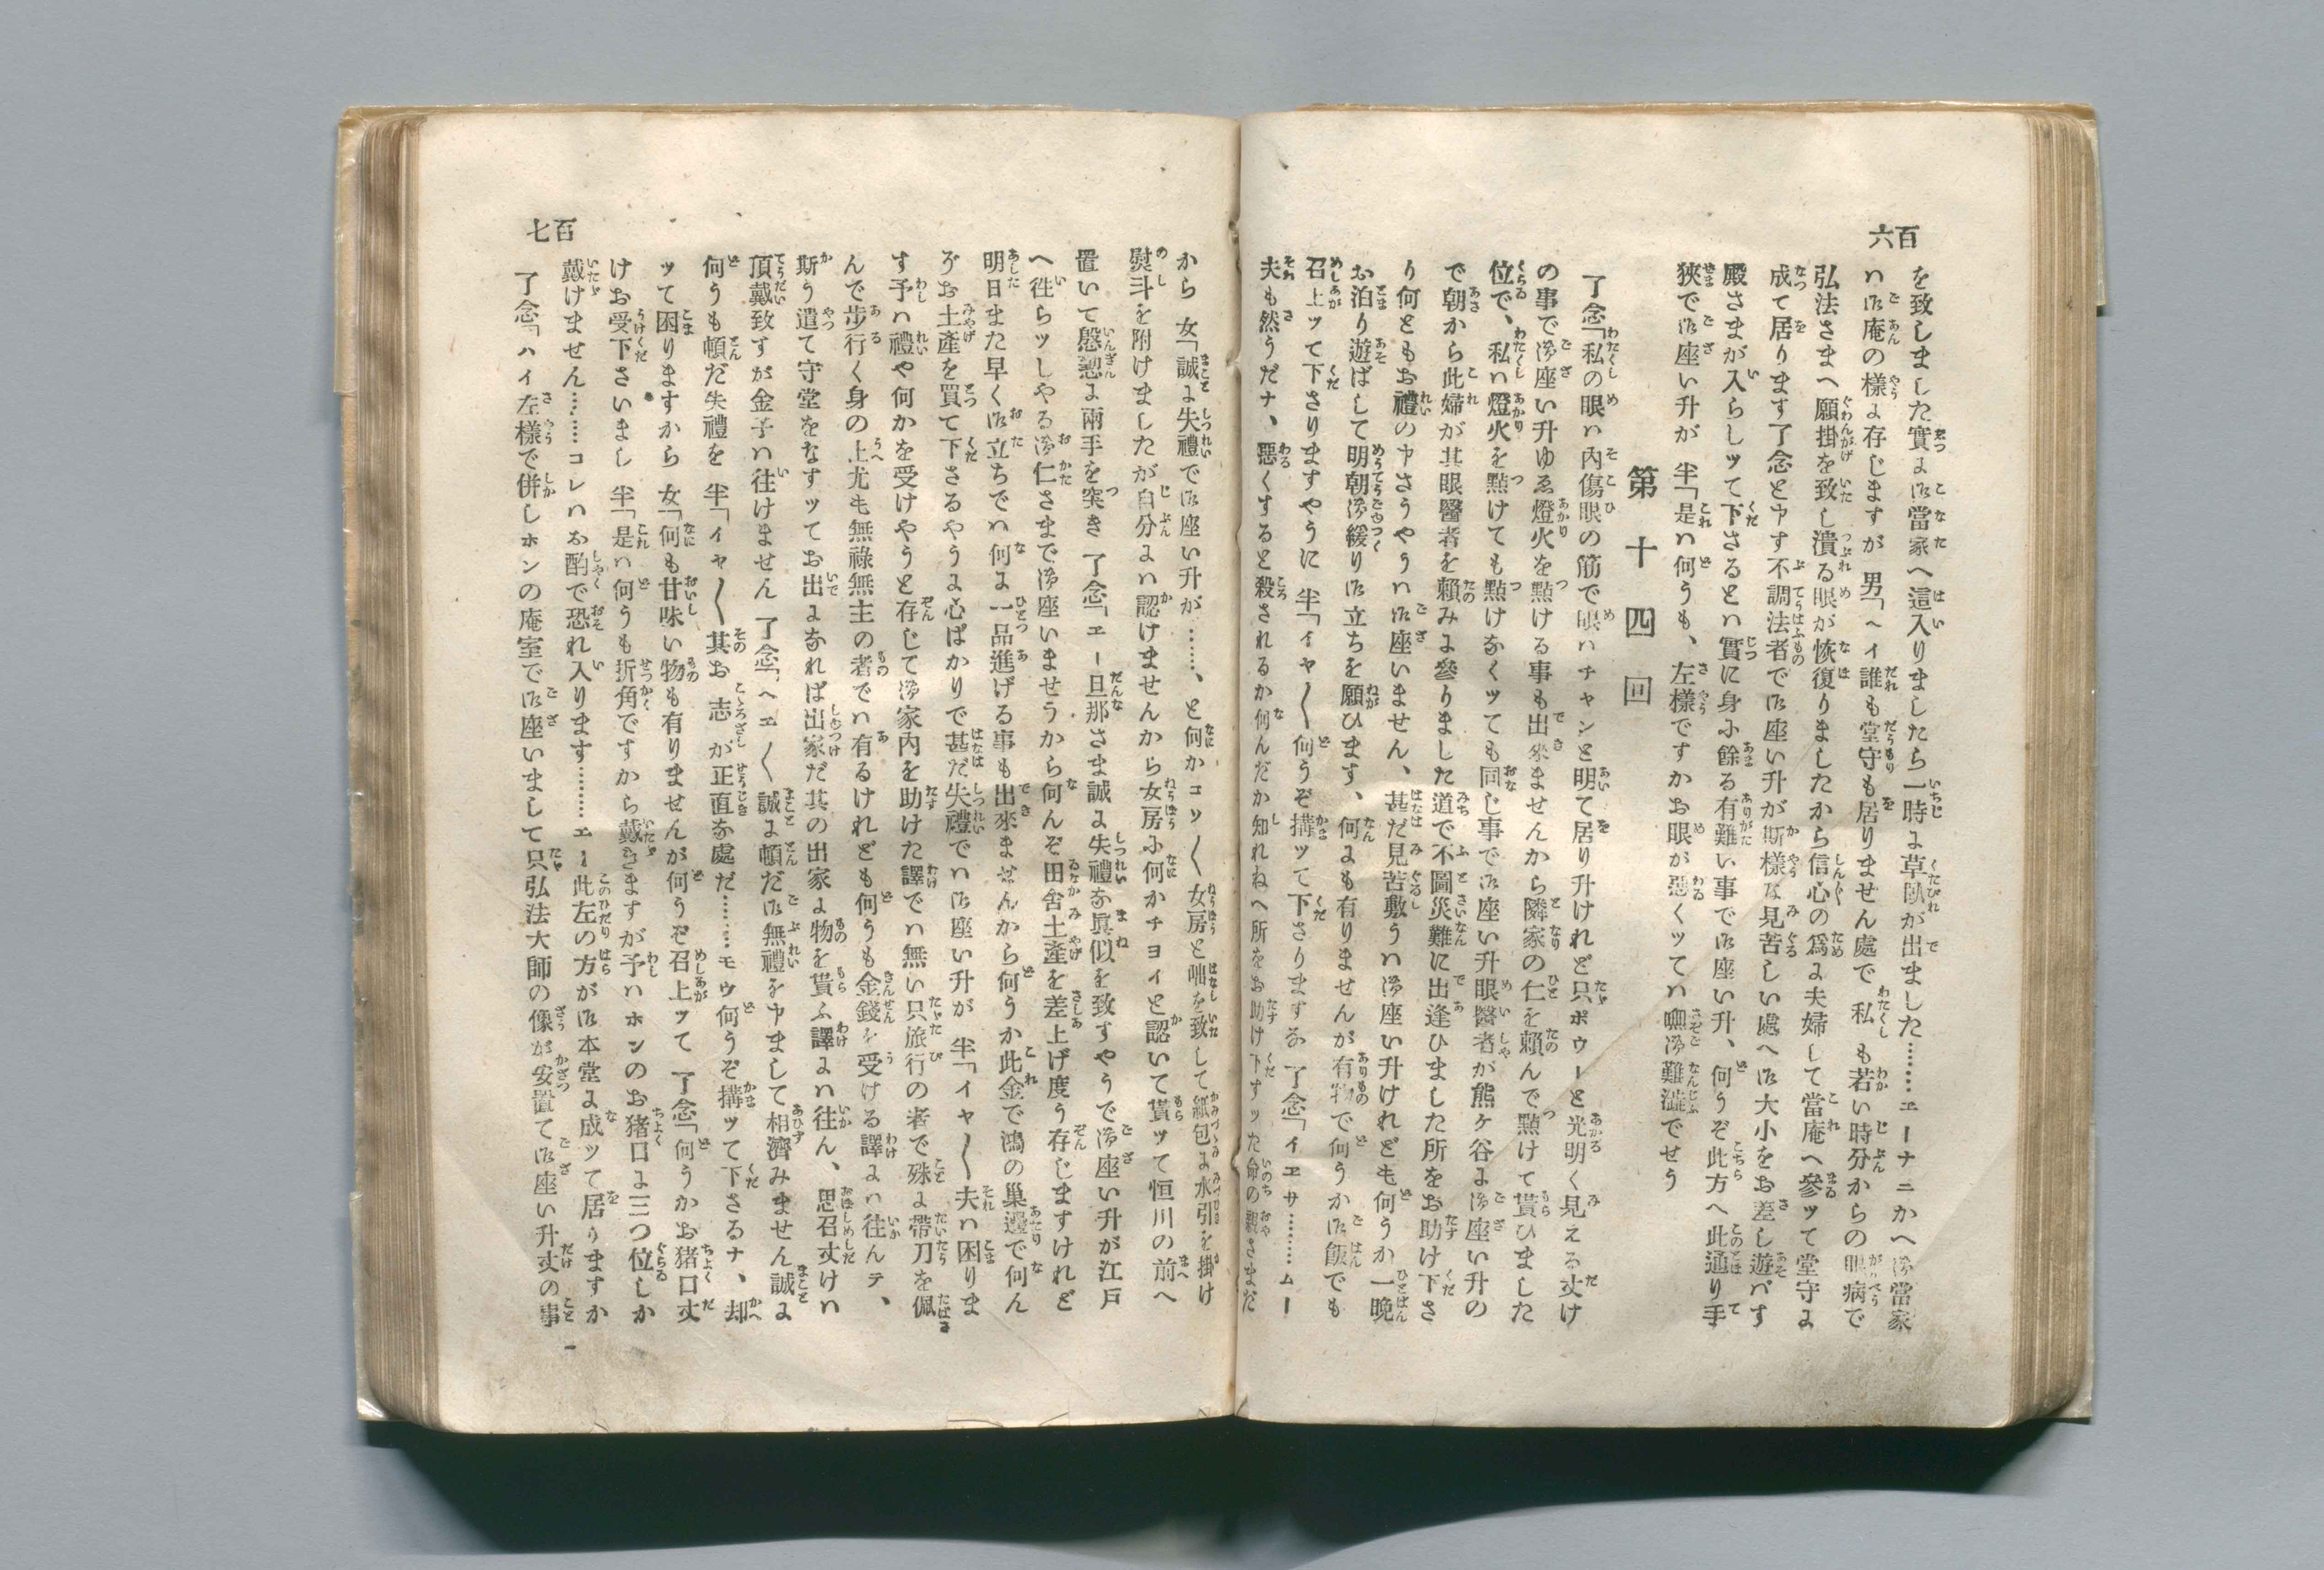 百六
を致しました實に御當家へ這入りましたら一時に草臥が出ました………エーナニかへ御當家
ハ御庵の樣に存じますが 男「ヘイ誰も堂守も居りません處で 私も若い時分からの眼病で
弘法さまへ願掛を致し潰る眼が恢復りましたから信心の爲に夫婦して當庵へ參ツて堂守に
成て居ります了念と申す不調法者で御座い升が斯樣な見苦しい處へ御大小をお差し遊バす
殿さまが入らしツて下さるとハ實に身に餘る有難い事で御座い升、何うぞ此方へ此通り手
狹で御座い升が 半「是ハ何うも、左樣ですかお眼が惡くツてハ嘸御難澁でせう
第十四回
了念「私の眼ハ內傷眼の筋で眼ハチャンと明て居り升けれど只ポウーと光明く見える丈け
の事で御座い升ゆゑ燈火を點ける事も出來ませんから隣家の仁を賴んで點けて貰ひました
位で、私ハ燈火を點けても點けなくツても同じ事で御座い升眼醫者が熊ヶ谷に御座い升の
で朝から此婦が其眼醫者を賴みに參りました道で不圖災難に出逢ひました所をお助け下さ
り何ともお禮の申さうやうハ御座いません、甚だ見苦敷うハ御座い升けれども何うか一晩
お泊り遊ばして明朝御緩り御立ちを願ひます、何にも有りませんが有物で何うか御飯でも
召上ツて下さりますやうに 半「イヤ〱何うぞ搆ツて下さりまするな 了念「イエサ………ムー
夫も然うだナ、惡くすると殺されるか何んだか知れねへ所をお助け下すツた命の親さまだ
百七
から 女「誠に失禮で御座い升が……、と何かコソ〱女房と咄を致して紙包に水引を掛け
熨斗を附けましたが自分にハ認けませんから女房に何かチヨイと認いて貰ツて恒川の前へ
置いて慇懃に兩手を突き 了念「エー旦那さま誠に失禮な眞似を致すやうで御座い升が江戸
へ徃らツしやる御仁さまで御座いませうから何んぞ田舍土產を差上げ度う存じますけれど
明日また早く御立ちでハ何に一品進げる事も出來ませんから何うか此金で鴻の巢邊で何ん
ぞお土產を買て下さるやうに心ばかりで甚だ失禮でハ御座い升が 半「イヤ〱夫ハ困りま
す予ハ禮や何かを受けやうと存じて御家內を助けた譯でハ無い只旅行の者で殊に帶刀を佩
んで步行く身の上尤も無祿無主の者でハ有るけれども何うも金錢を受ける譯にハ往んテ、
斯う遣て守堂をなすツてお出になれば出家だ其の出家に物を貰ふ譯にハ往ん、思召丈けハ
頂戴致すが金子ハ往けません 了念「ヘエ〱誠に頓だ御無禮を申まして相濟みません誠に
何うも頓だ失禮を 半「イヤ〱其お志が正直な處だ……モウ何うぞ搆ツて下さるナ、却
ツて困りますから 女「何も甘味い物も有りませんが何うぞ召上ツて 了念「何うかお猪口丈
けお受下さいまし 半「是ハ何うも折角ですから戴きますが予ハホンのお猪口に三つ位しか
戴けません……コレハお酌で恐れ入ります………エー此左の方が御本堂に成ツて居りますか
了念「ハイ左樣で併しホンの庵室で御座いまして只弘法大師の像が安置て御座い升丈の事